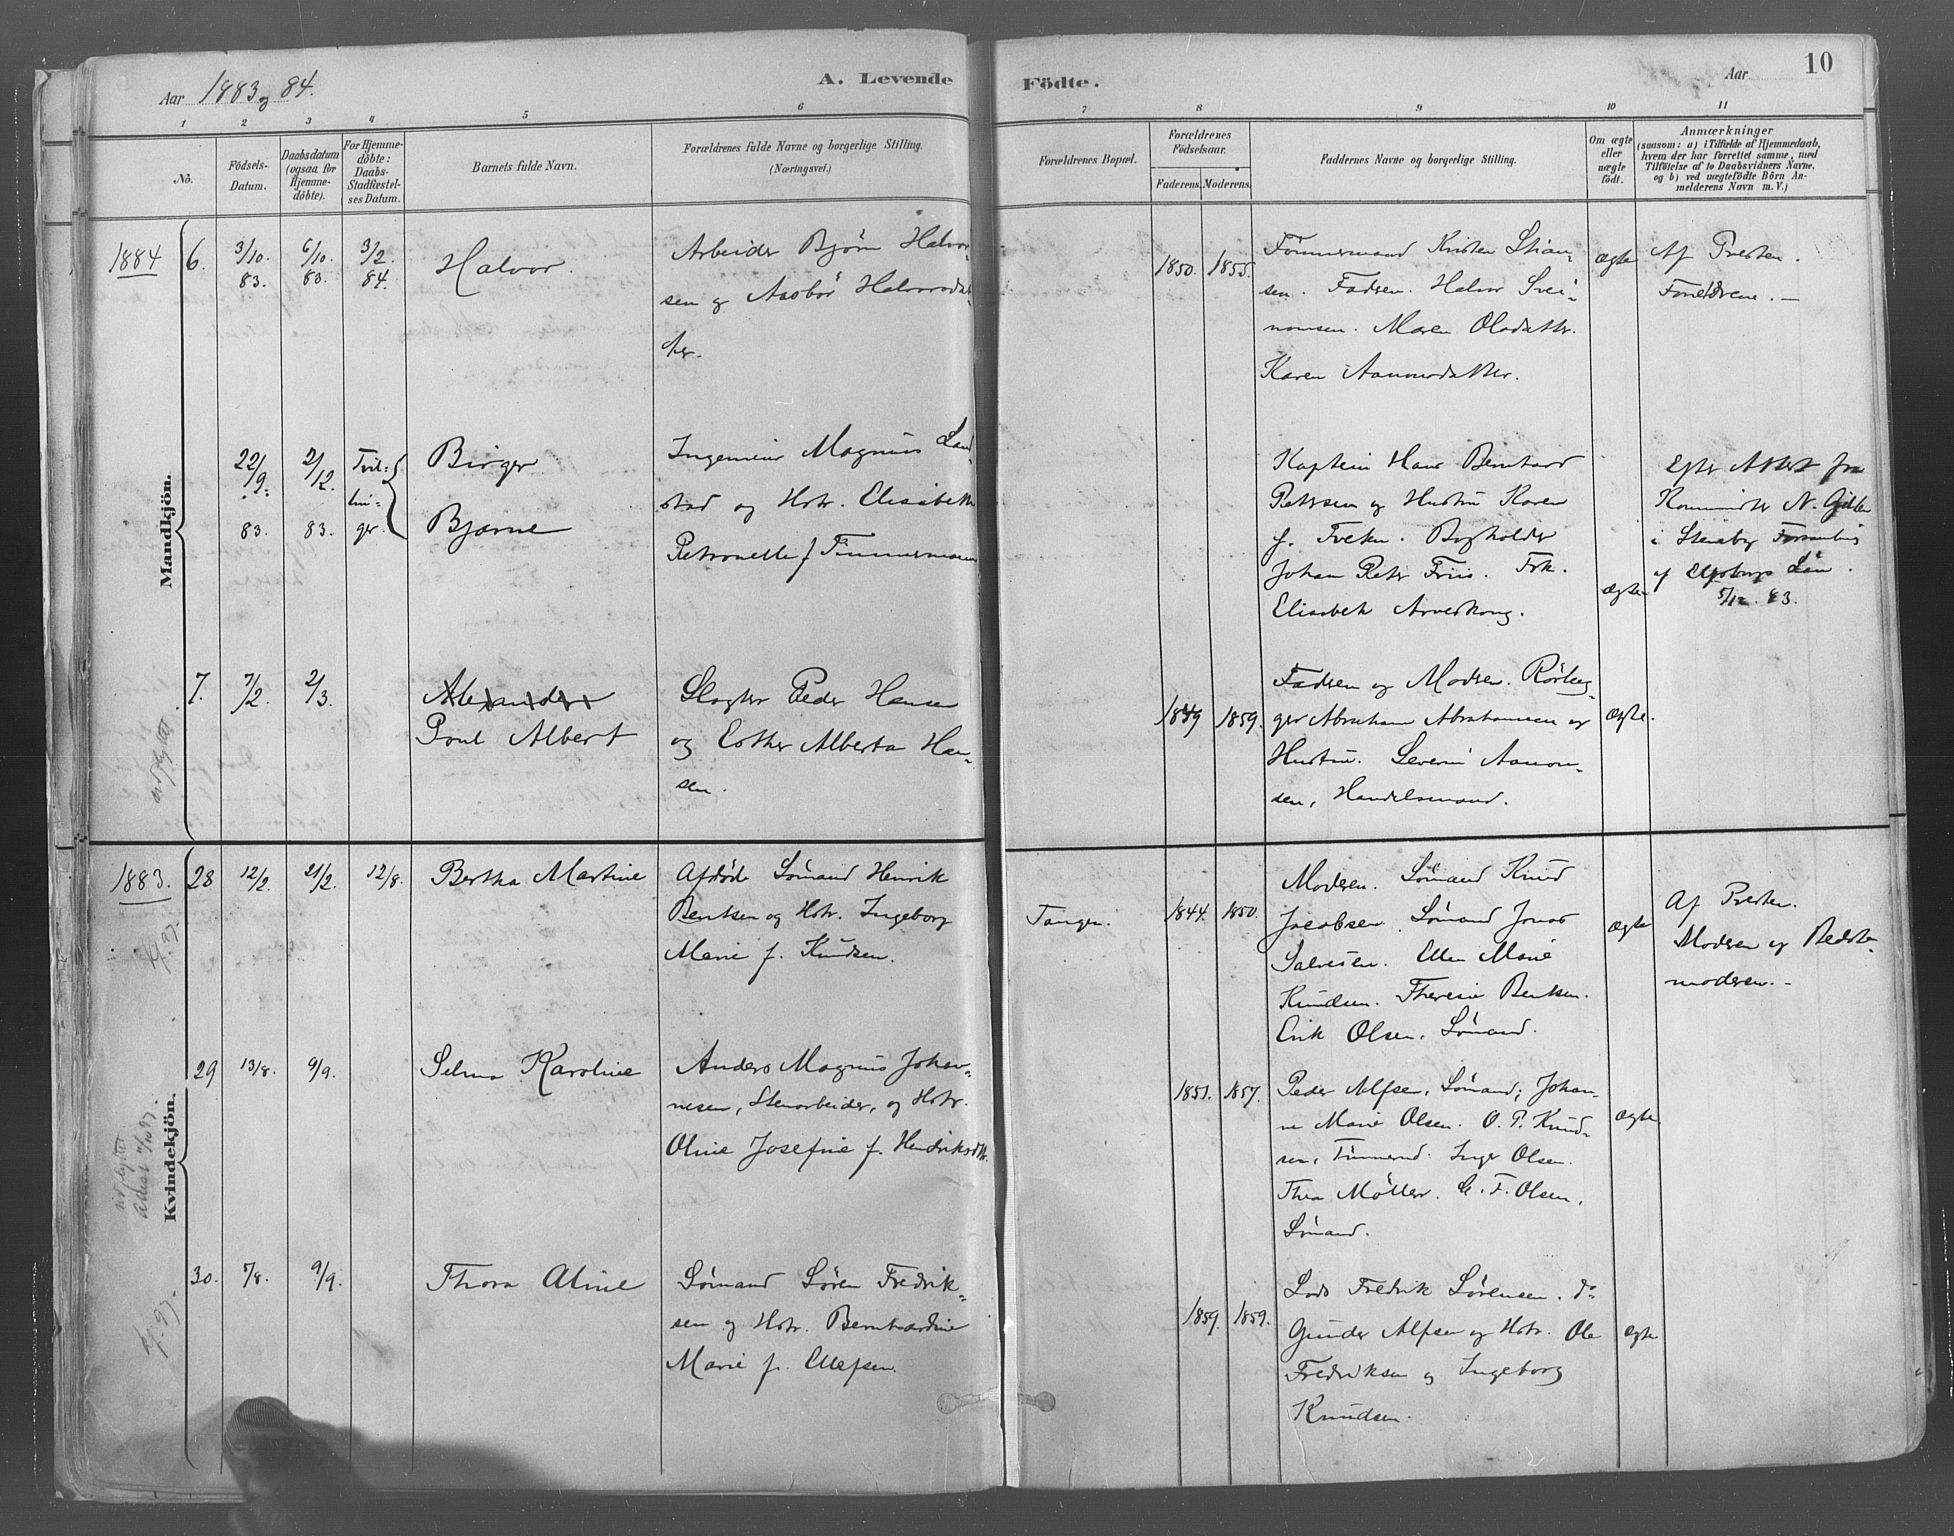 Aar 1883 og 84.
A. Levende
Födte.
Aar
10
1
2
3
4
5
6
7
8
9
10
11
No.
Födsels-
Datum.
Daabsdatum
(ogsaa for
Hjemme-
döbte).
For Hjemme-
döbte:
Daabs-
Stadfæstel-
ses Datum.
Barnets fulde Navn.
Forældrenes fulde Navne og borgerlige Stilling.
(Næringsvei.)
Forældrenes Bopæl.
Forældrenes
Födselsaar.
Faderens.
Moderens.
Faddernes Navne og borgerlige Stilling.
Om ægte
eller
uægte
födt.
Anmærkninger
(saasom: a) i Tilfælde af Hjemmedaab,
hvem der har forrettet samme, med
Tilföielse af to Daabsvidners Navne.
og b) ved uægtefödte Börn An-
melderens Navn m. V.)
Mandkjön.
1884
6.
3/10.
83.
6/10.
83.
3/2.
84.
Halvor.
Arbeider Bjørn Halvor-
sen og Aasbör Halvorsdat-
ter.
1850.
1855.
Tömmermand Kristen Stian-
sen. Fadren. Halvor Svei-
nomsen. Maren Olsdatter.
Karen Aanonsdatter.
ægte
Af Presten.
Forældrene. —
22/9.
83.
2/12.
83.
Tvil-
lin-
ger.
Birger
Bjarne
Ingeniør Magnus Land-
stad og Hstr. Elisabeth
Petronelle f. Timmermann
Kaptein Hans Bernhard
Petersen og Hustru Karen
f. Tveten. Bogholder
Johan Peter Friis. Frk.
Elisabeth Arveskoug.
ægte
Efter Attest fra
i Steneby
af Elfsborgs Län.
5/12. 83.
7.
7/2.
2/3.
Alexander
Poul Albert
Slagter Peder Hansen
og Esther Alberta Han-
sen.
1849
1859.
Fadren og Modren. Rørlæg-
ger Abraham Abrahamsen og
Hustru. Severin Aanon-
sen, Handelsmand.
ægte.
udflyttet
Kvindekjön.
1883.
28
12/2.
21/2.
12/8.
Bertha Martine
Afdøde Sömand Henrik
Bentsen og Hstr. Ingeborg
Marie f. Knudsen.
Tangen.
1844.
1850.
Modren. Sömand Knud
Jacobsen. Sömand Jonas
Salvesen. Ellen Marie
Knudsen. Theresie Bentsen.
Erik Olsen, Sömand.
ægte
Af Presten.
Modren og Bedste-
moderen. -
29
13/8.
9/9.
Selma Karoline
Anders Magnus Johan-
nesen, Stenarbeider, og Hstr.
Oline Josefine f. Hendriksdtr.
1851.
1857.
Peder Alfsen, Sömand; Johan-
ne Marie Olsen. O. P. Knud-
sen, Tömmermd. Inger Olsen.
Thea Møller. G. F. Olsen,
Sömand.
ægte
udflyttet
30.
7/8.
9/9.
Thora Aline
Sömand Sören Fredrik-
sen og Hstr. Bernhardine
Marie f. Ellefsen.
1859.
1859.
Lods Fredrik Sørensen. do
Gunder Alfsen og Hstr. Ole
Fredriksen og Ingeborg
Knudsen.
ægte